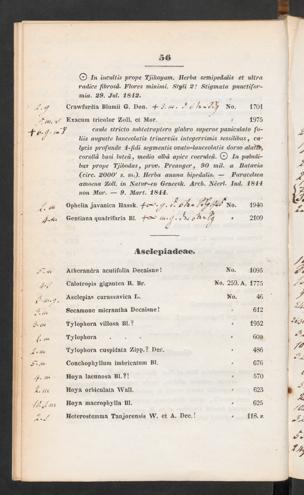 56
⊙ In incultis prope Tjikoyam. Herba semipedalis et ultra
radice fibrosâ. Flores minimi. Styli 2? Stigmata punctifor-
mia. 29. Jul. 1842.
Crawfurdia Blumii G. Don. No. 1701
Exacum tricolor Zoll. et Mor. " 1975
caule stricto subtetraptero glabro superne paniculato fo-
liis auguste lanceolatis trinerviis integerrimis sessilibus, ca-
lycis profunde 4-fidi segmentis ovato-lanceolatis dorso alatis,
corollâ basi luteâ, medio albâ apice coeruleâ. ⊙ In paludi-
bus prope Tjibodas, prov. Preanger, 90 mil. a Batavia
(circ. 2000' s. m.). Herba annua bipedalis. — Paracelsea
amoena Zoll. in Natur-en Geneesk. Arch. Néerl. Ind. 1844
non Mor. — 9. Mart. 1844.
Ophelia javanica Hassk. No. 1940
Gentiana quadrifaria Bl. " 2109
Asclepiadeae.
Atherandra acutifolia Decaisne! No. 1095
Calotropis gigantea R. Br. No. 259. A. 1775
Asclepias curassavica L. No. 46
Secamone micrantha Decaisne! " 612
Tylophora villosa Bl.? " 1952
Tylophora . " 609
Tylophora cuspidata Zipp.? Dec. " 486
Conchophyllum imbricatum Bl. " 676
Hoya lacunosa Bl.?! " 570
Hoya orbiculata Wall. " 623
Hoya macrophylla Bl. " 625
Heterostemma Tanjorensis W. et A. Dec.! " 118. z.